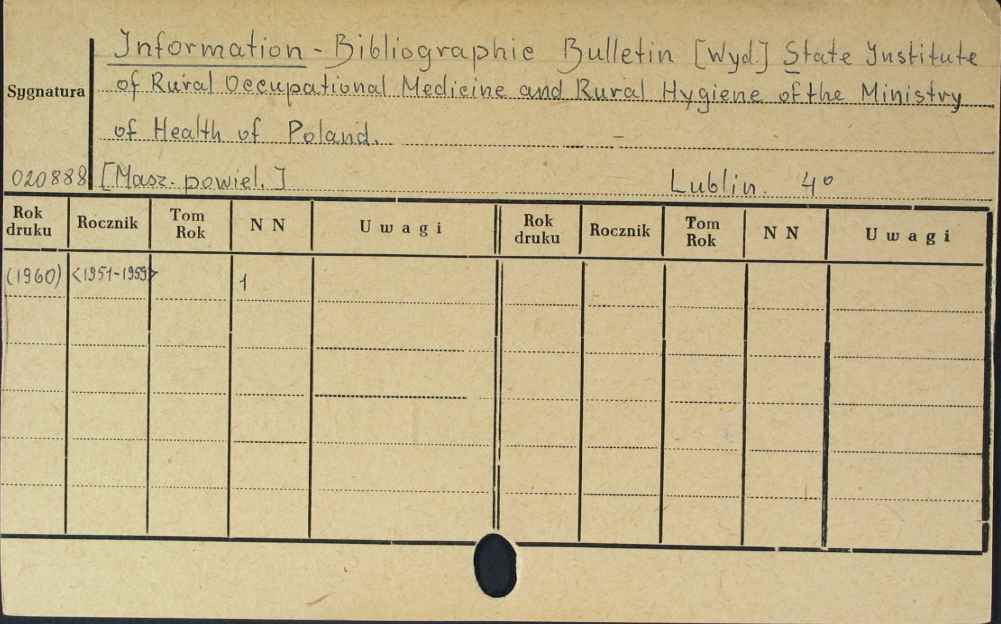 Information - Bibliographic Bulletin [Wyd.] State Institute
Sygnatura of Rural Occupational Medicine and Rural Hygiene of the Ministry
of Health of Poland. -
020888 [Masz. powiel.] Lublin. 4º
Rok druku Rocznik Tom Rok N N Uwagi Rok druku Rocznik Tom Rok N N Uwagi
(1960) <1951-1959> 1